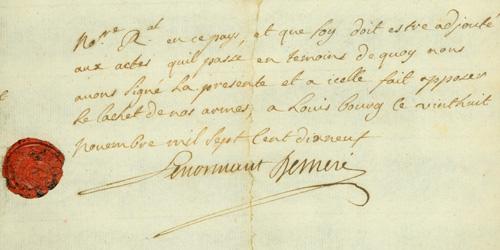 No.re R.al en ce pays, et que foy doit estre adjoutée
aux actes quil passe en temoins de quoy nous
avons signé la presente et a icelle fait apposer
le cachet de nos armes, a Louis bourg ce vint huit
novembre mil sept Cent dixneuf
Lenormant Demeri